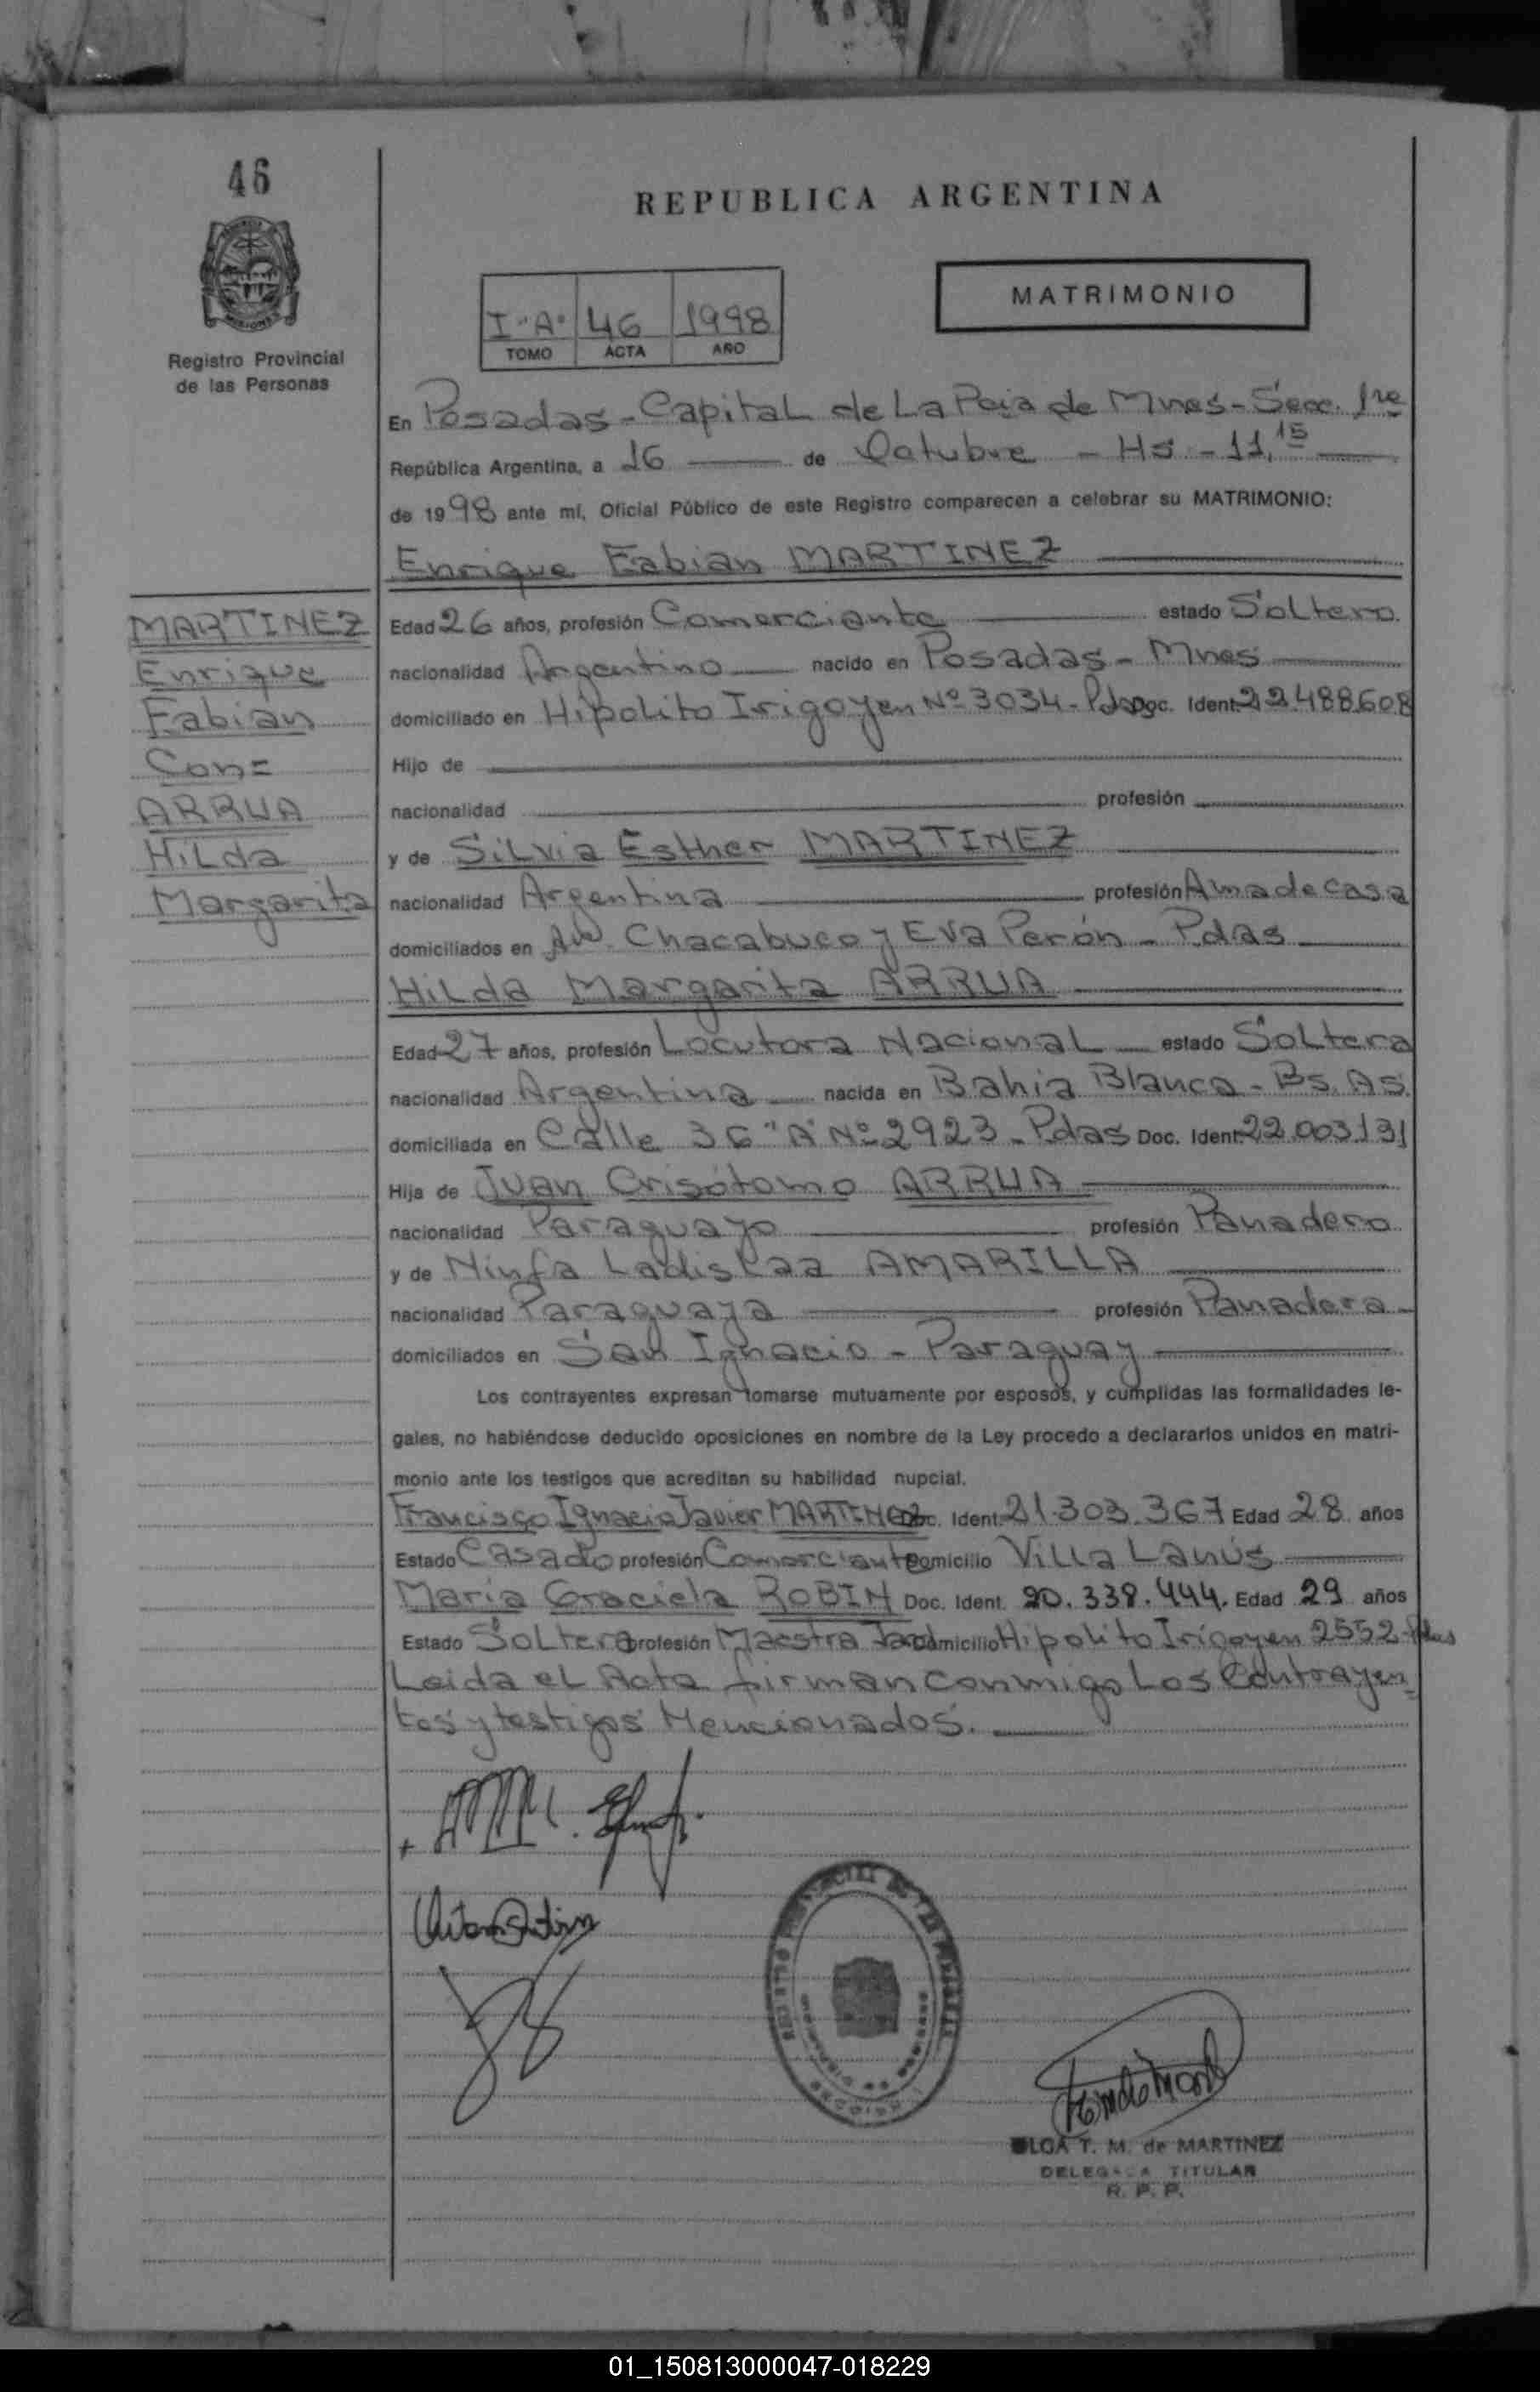 46
REPUBLICA ARGENTINA
MATRIMONIO
I "A" 46 1998
TOMO ACTA AÑO
Registro Provincial
de las Personas
En Posadas - Capital de La Pcia de Mnes - Secc. 1re
República Argentina, a 16 de Octubre - Hs - 11,15
de 1998 ante mí, Oficial Público de este Registro comparecen a celebrar su MATRIMONIO:
Enrique Fabian MARTINEZ
MARTINEZ
Enrique
Fabian
Con=
ARRUA
HiLda
Margarita
Edad 26 años, profesión Comerciante estado SoLtero
nacionalidad Argentino nacido en Posadas - Mnes
domiciliado en Hipolito Irigoyen Nº 3034 - Pdas Doc. Ident. 22.488.608
Hijo de
nacionalidad profesión
y de SiLvia Esther MARTINEZ
nacionalidad Argentina profesión Ama de casa
domiciliados en Av. Chacabuco y Eva Perón - Pdas
HiLda Margarita ARRUA
Edad 27 años, profesión Locutora NacionaL estado SoLtera
nacionalidad Argentina nacida en Bahia Blanca - Bs. As.
domiciliada en Calle 36 "A" Nº 2923 - Pdas Doc. Ident. 22.003.131
Hija de Juan Crisótomo ARRUA
nacionalidad Paraguayo profesión Panadero
y de Ninfa LadisLaa AMARILLA
nacionalidad Paraguaya profesión Panadera
domiciliados en San Ignacio - Paraguay
Los contrayentes expresan tomarse mutuamente por esposos, y cumplidas las formalidades le-
gales, no habiéndose deducido oposiciones en nombre de la Ley procedo a declararlos unidos en matri-
monio ante los testigos que acreditan su habilidad nupcial.
Francisco Ignacio Javier MARTINEZ Doc. Ident. 21.303.367 Edad 28 años
Estado Casado profesión Comerciante Domicilio ViLLa Lanús
Maria Graciela ROBIN Doc. Ident. 20.338.444. Edad 29 años
Estado SoLtera profesión Maestra Jard Domicilio Hipolito Irigoyen 2552 - Pdas
Leida eL Acta firman conmigo Los Contrayen_
tes y testigos Mencionados.
OLGA T. M. de MARTINEZ
DELEGADA TITULAR
R. P. P.
01_150813000047-018229